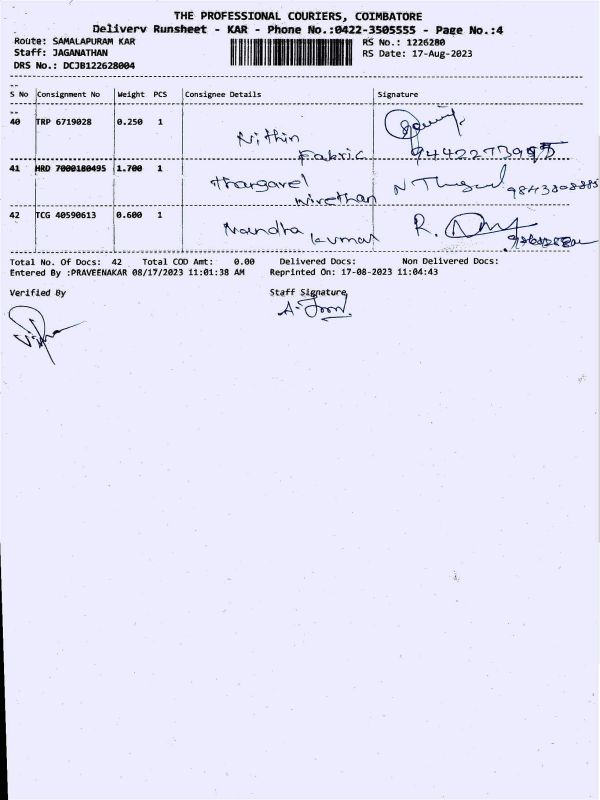 THE PROFESSIONAL COURIERS, COIMBATORE
Delivery Runsheet - KAR - Phone No.:0422-3505555 - Page No.:4
Route: SAMALAPURAM KAR RS No.: 1226280
Staff: JAGANATHAN RS Date: 17-Aug-2023
DRS No.: DCJB122628004
S No Consignment No Weight PCS Consignee Details Signature
40 TRP 6719028 0.250 1
Nithin
Fabric
41 HRD 7000180495 1.700 1
9843308885
42 TCG 40590613 0.600 1
Nandha R.
kumar
Total No. Of Docs: 42 Total COD Amt: 0.00 Delivered Docs: Non Delivered Docs:
Entered By :PRAVEENAKAR 08/17/2023 11:01:38 AM Reprinted On: 17-08-2023 11:04:43
Verified By Staff Signature